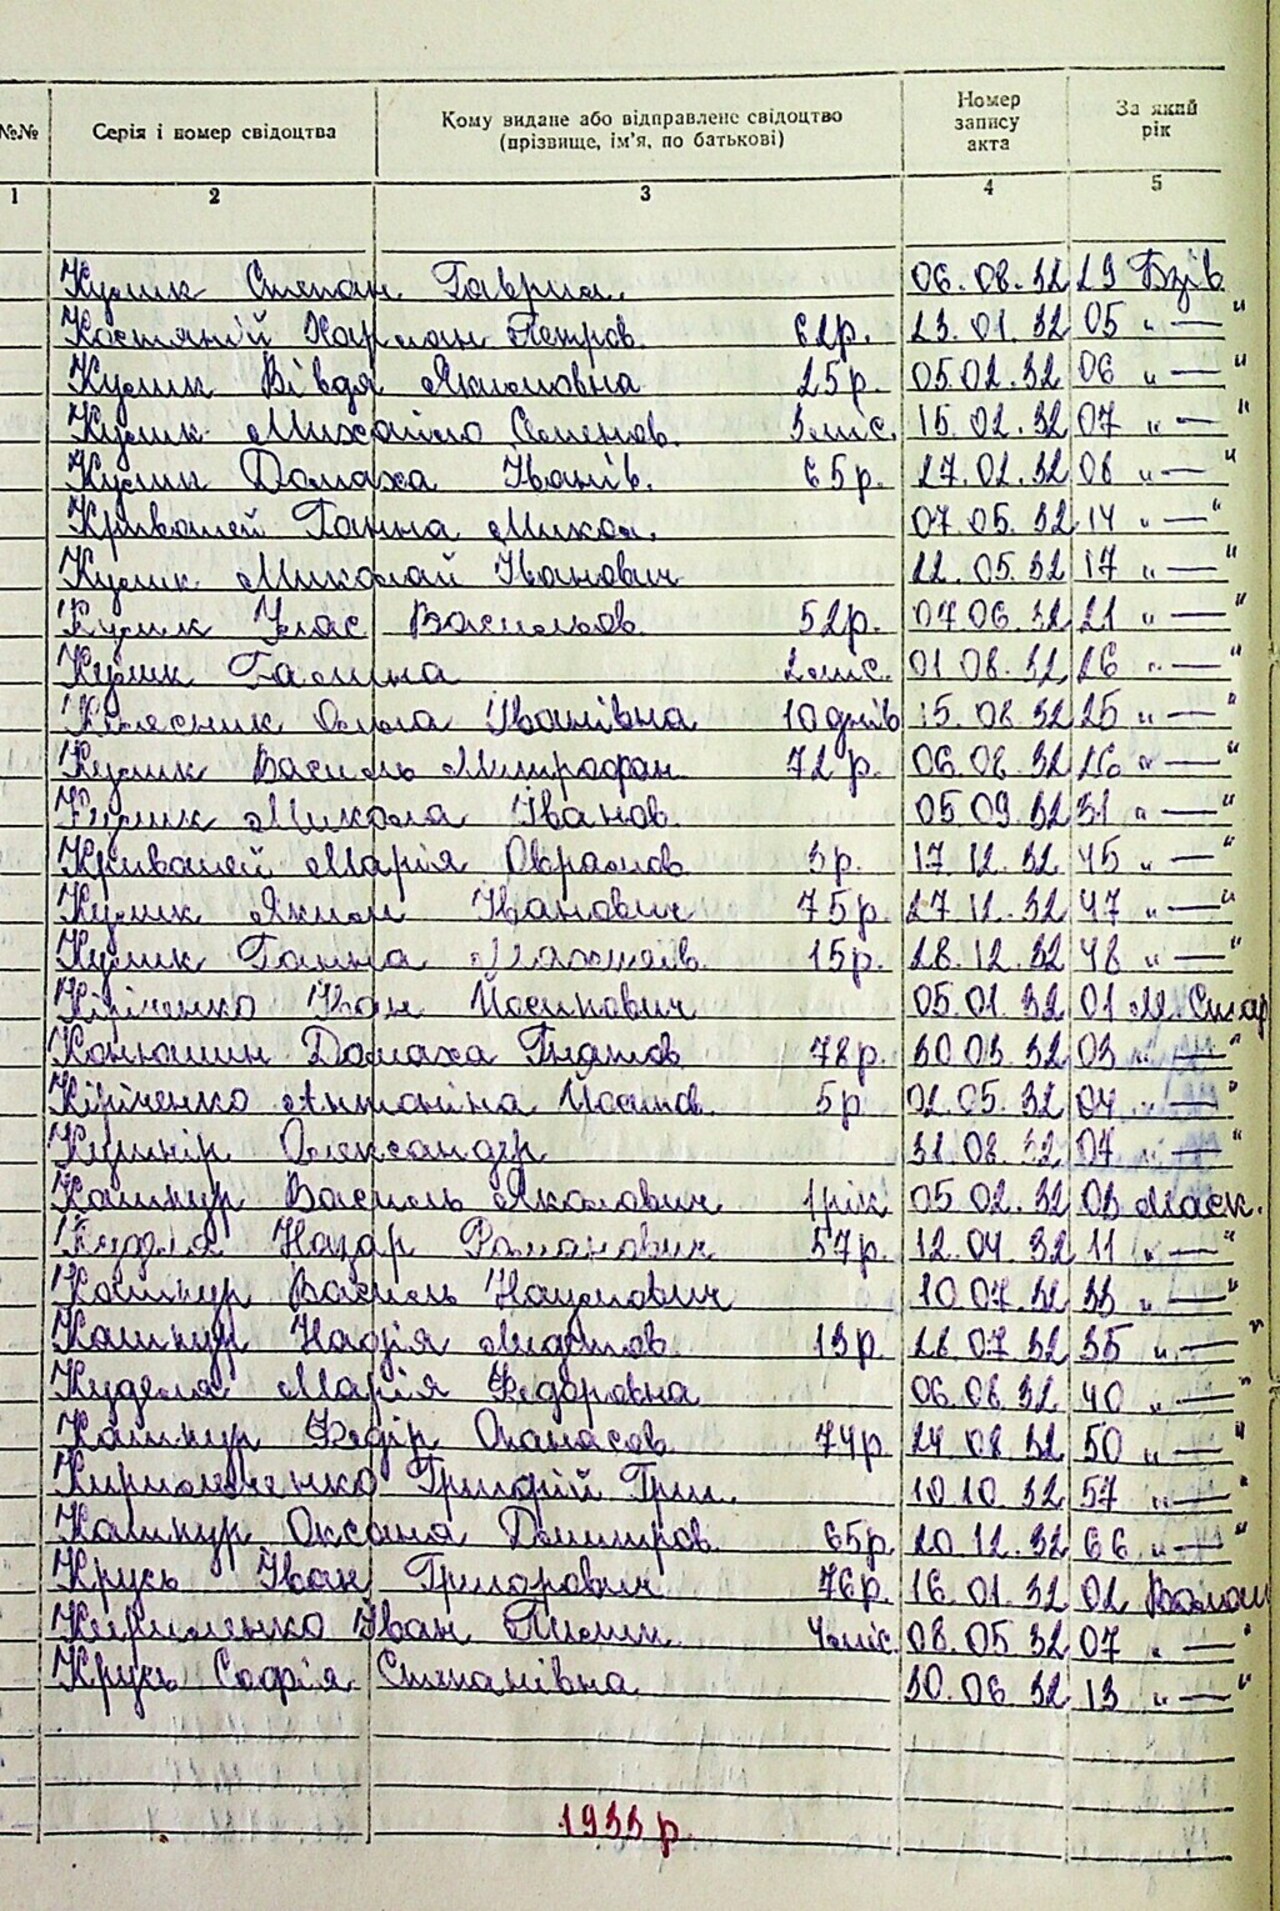 №№ Серія і номер свідоцтва Кому видане або відправлене свідоцтво (прізвище, ім'я, по батькові) Номер запису акта За який рік
1 2 3 4 5
Кулик Степан Гаврил. 06.08.32 29 Бзів
Костяний Харлан Петров. 62р. 23.01.32 05 „ — "
Кулик Вівдя Якимовна 25р. 05.02.32 06 „ — "
Кулик Михайло Семенов. 3 міс. 15.02.32 07 „ — "
Кулик Домаха Іванів. 65р. 27.02.32 08 „ — "
Кривошей Ганна Микол. 07.05.32 14 „ — "
Кулик Миколай Іванович 22.05.32 17 „ — "
Кулик Улас Васильов. 52р. 07.06.32 21 „ — "
Кулик Галина 2 міс. 01.08.32 26 „ — "
Колесник Ольга Іванівна 10 днів 15.08.32 25 „ — "
Кулик Василь Митрофан. 72р. 06.08.32 26 „ — "
Кулик Микола Іванов. 05.09.32 31 „ — "
Кривошей Марія Оврамов. 3р. 17.12.32 45 „ — "
Кулик Яким Іванович 75р. 27.12.32 47 „ — "
Кулик Ганна Матвіїв. 15р. 28.12.32 48 „ — "
Кіріченко Іван Йосипович 05.01.32 01 М. Стар
Конюшин Домаха Гнатов. 78р. 30.03.32 03 „ — "
Кіріченко Антоніна Йосипов. 5р. 02.05.32 04 „ — "
Кушнір Олександр 31.08.32 07 „ — "
Кашпур Василь Якович 1 рік 05.02.32 03 Маск.
Кудделя Назар Романович 57р. 12.04.32 11 „ — "
Кашпур Василь Наумович 10.07.32 33 „ — "
Кашпур Надія Модстов. 13р. 28.07.32 35 „ — "
Кудделя Марія Федоровна 06.08.32 40 „ — "
Кашпур Федір Опанасов. 74р. 24.08.32 50 „ — "
Григорій Григ. 10.10.32 57 „ — "
Кашпур Оксана Дмитров. 65р. 20.12.32 66 „ — "
Крусь Іван Григорович 76р. 16.01.32 02 Волош
Кириленко Іван Пилип. 4 міс. 08.05.32 07 „ — "
Крусь Софія Степанівна 30.06.32 13 „ — "
1933 р.